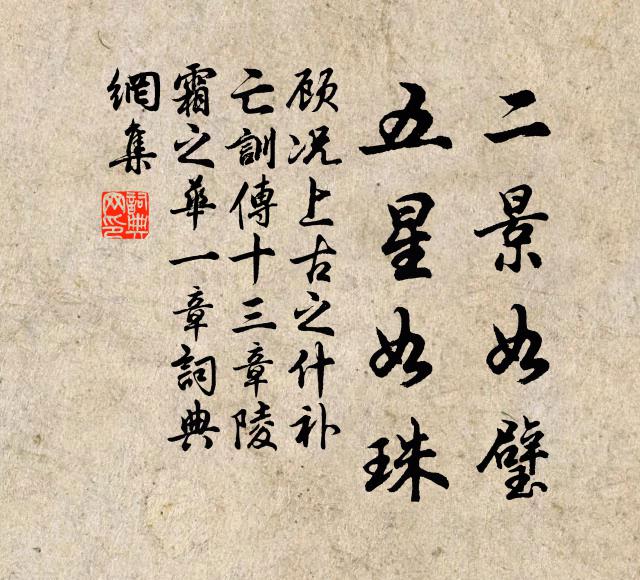 二景如璧
五星如珠
顾况上古之什补
亡訓傳十三章陵
霜之華一章詞典
網集
詞典
网印